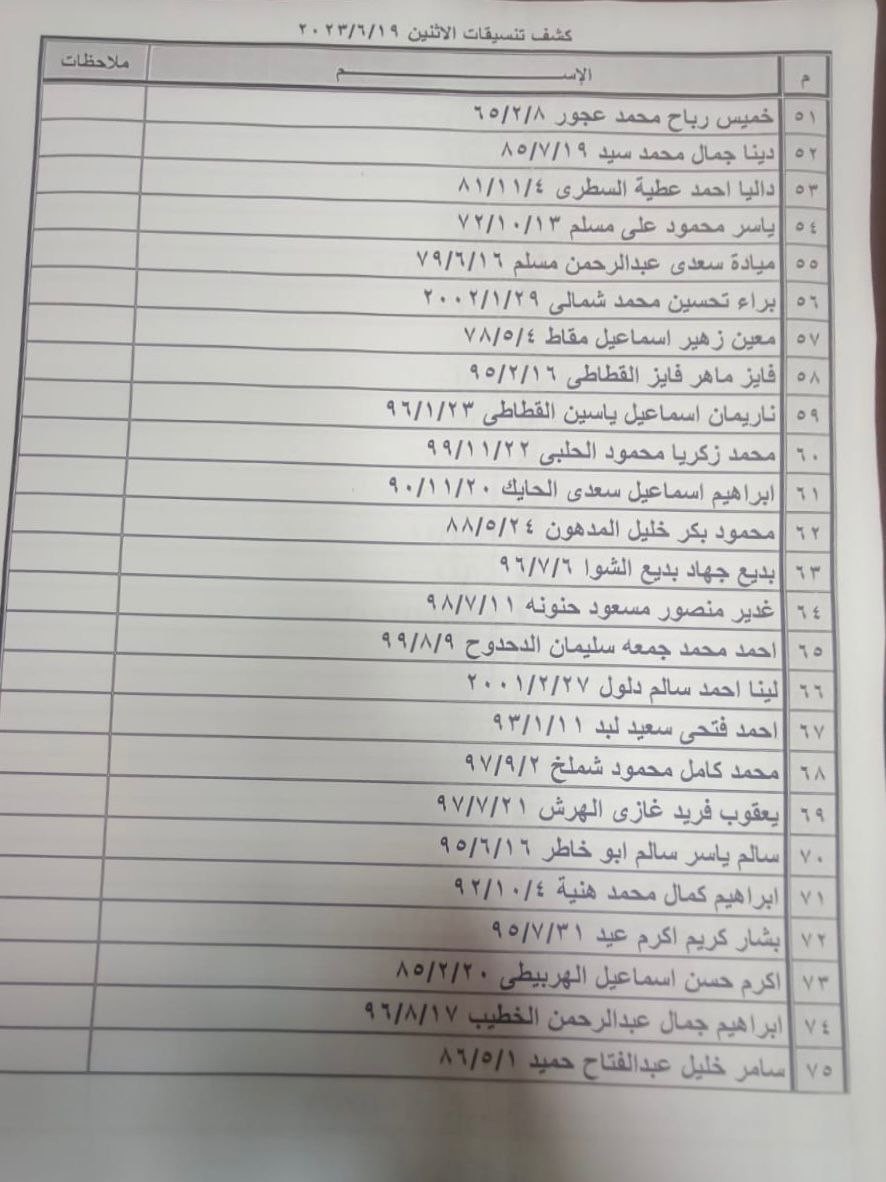 كشف تنسيقات الاثنين ٢٠٢٣/٦/١٩
م الإســـــــــــم ملاحظات
٥١ خميس رباح محمد عجور ٦٥/٢/٨
٥٢ دينا جمال محمد سيد ٨٥/٧/١٩
٥٣ داليا احمد عطية السطرى ٨١/١١/٤
٥٤ ياسر محمود على مسلم ٧٢/١٠/١٣
٥٥ ميادة سعدى عبدالرحمن مسلم ٧٩/٦/١٦
٥٦ براء تحسين محمد شمالى ٢٠٠٢/١/٢٩
٥٧ معين زهير اسماعيل مقاط ٧٨/٥/٤
٥٨ فايز ماهر فايز القطاطى ٩٥/٢/١٦
٥٩ ناريمان اسماعيل ياسين القطاطى ٩٦/١/٢٣
٦٠ محمد زكريا محمود الحلبى ٩٩/١١/٢٢
٦١ ابراهيم اسماعيل سعدى الحايك ٩٠/١١/٢٠
٦٢ محمود بكر خليل المدهون ٨٨/٥/٢٤
٦٣ بديع جهاد بديع الشوا ٩٦/٧/٦
٦٤ غدير منصور مسعود حنونه ٩٨/٧/١١
٦٥ احمد محمد جمعه سليمان الدحدوح ٩٩/٨/٩
٦٦ لينا احمد سالم دلول ٢٠٠١/٢/٢٧
٦٧ احمد فتحى سعيد لبد ٩٣/١/١١
٦٨ محمد كامل محمود شملخ ٩٧/٩/٢
٦٩ يعقوب فريد غازى الهرش ٩٧/٧/٢١
٧٠ سالم ياسر سالم ابو خاطر ٩٥/٦/١٦
٧١ ابراهيم كمال محمد هنية ٩٢/١٠/٤
٧٢ بشار كريم اكرم عيد ٩٥/٧/٣١
٧٣ اكرم حسن اسماعيل الهربيطى ٨٥/٢/٢٠
٧٤ ابراهيم جمال عبدالرحمن الخطيب ٩٦/٨/١٧
٧٥ سامر خليل عبدالفتاح حميد ٨٦/٥/١